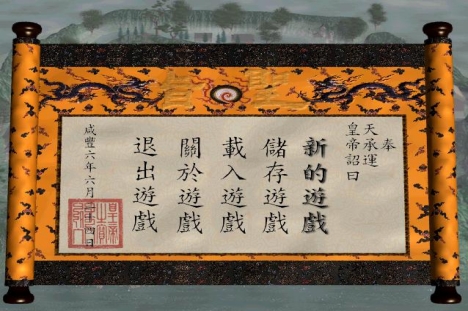 奉
天承運
皇帝詔曰
新的遊戲
儲存遊戲
載入遊戲
關於遊戲
退出遊戲
咸豐六年六月二十四日